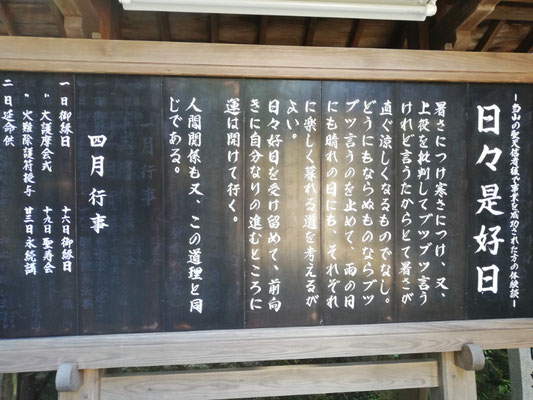 －当山の聖天信者様で事業を成功された方の体験談－
日々是好日
暑さにつけ寒さにつけ、又、
上役を批判してブツブツ言う
けれど言うたからとて暑さが
直ぐ涼しくなるものでなし。
どうにもならぬものならブツ
ブツ言うのを止めて、雨の日
にも晴れの日にも、それぞれ
に楽しく暮れる道を考えるが
よい。
日々好日を受け留めて、前向
きに自分なりの進むところに
運は開けて行く。
人間関係も又、この道理と同
じである。
四月行事
一日御縁日
〃 大護摩会式
〃 火難除護符授与
二日延命供
十六日御縁日
十九日聖寿会
廿三日永続講